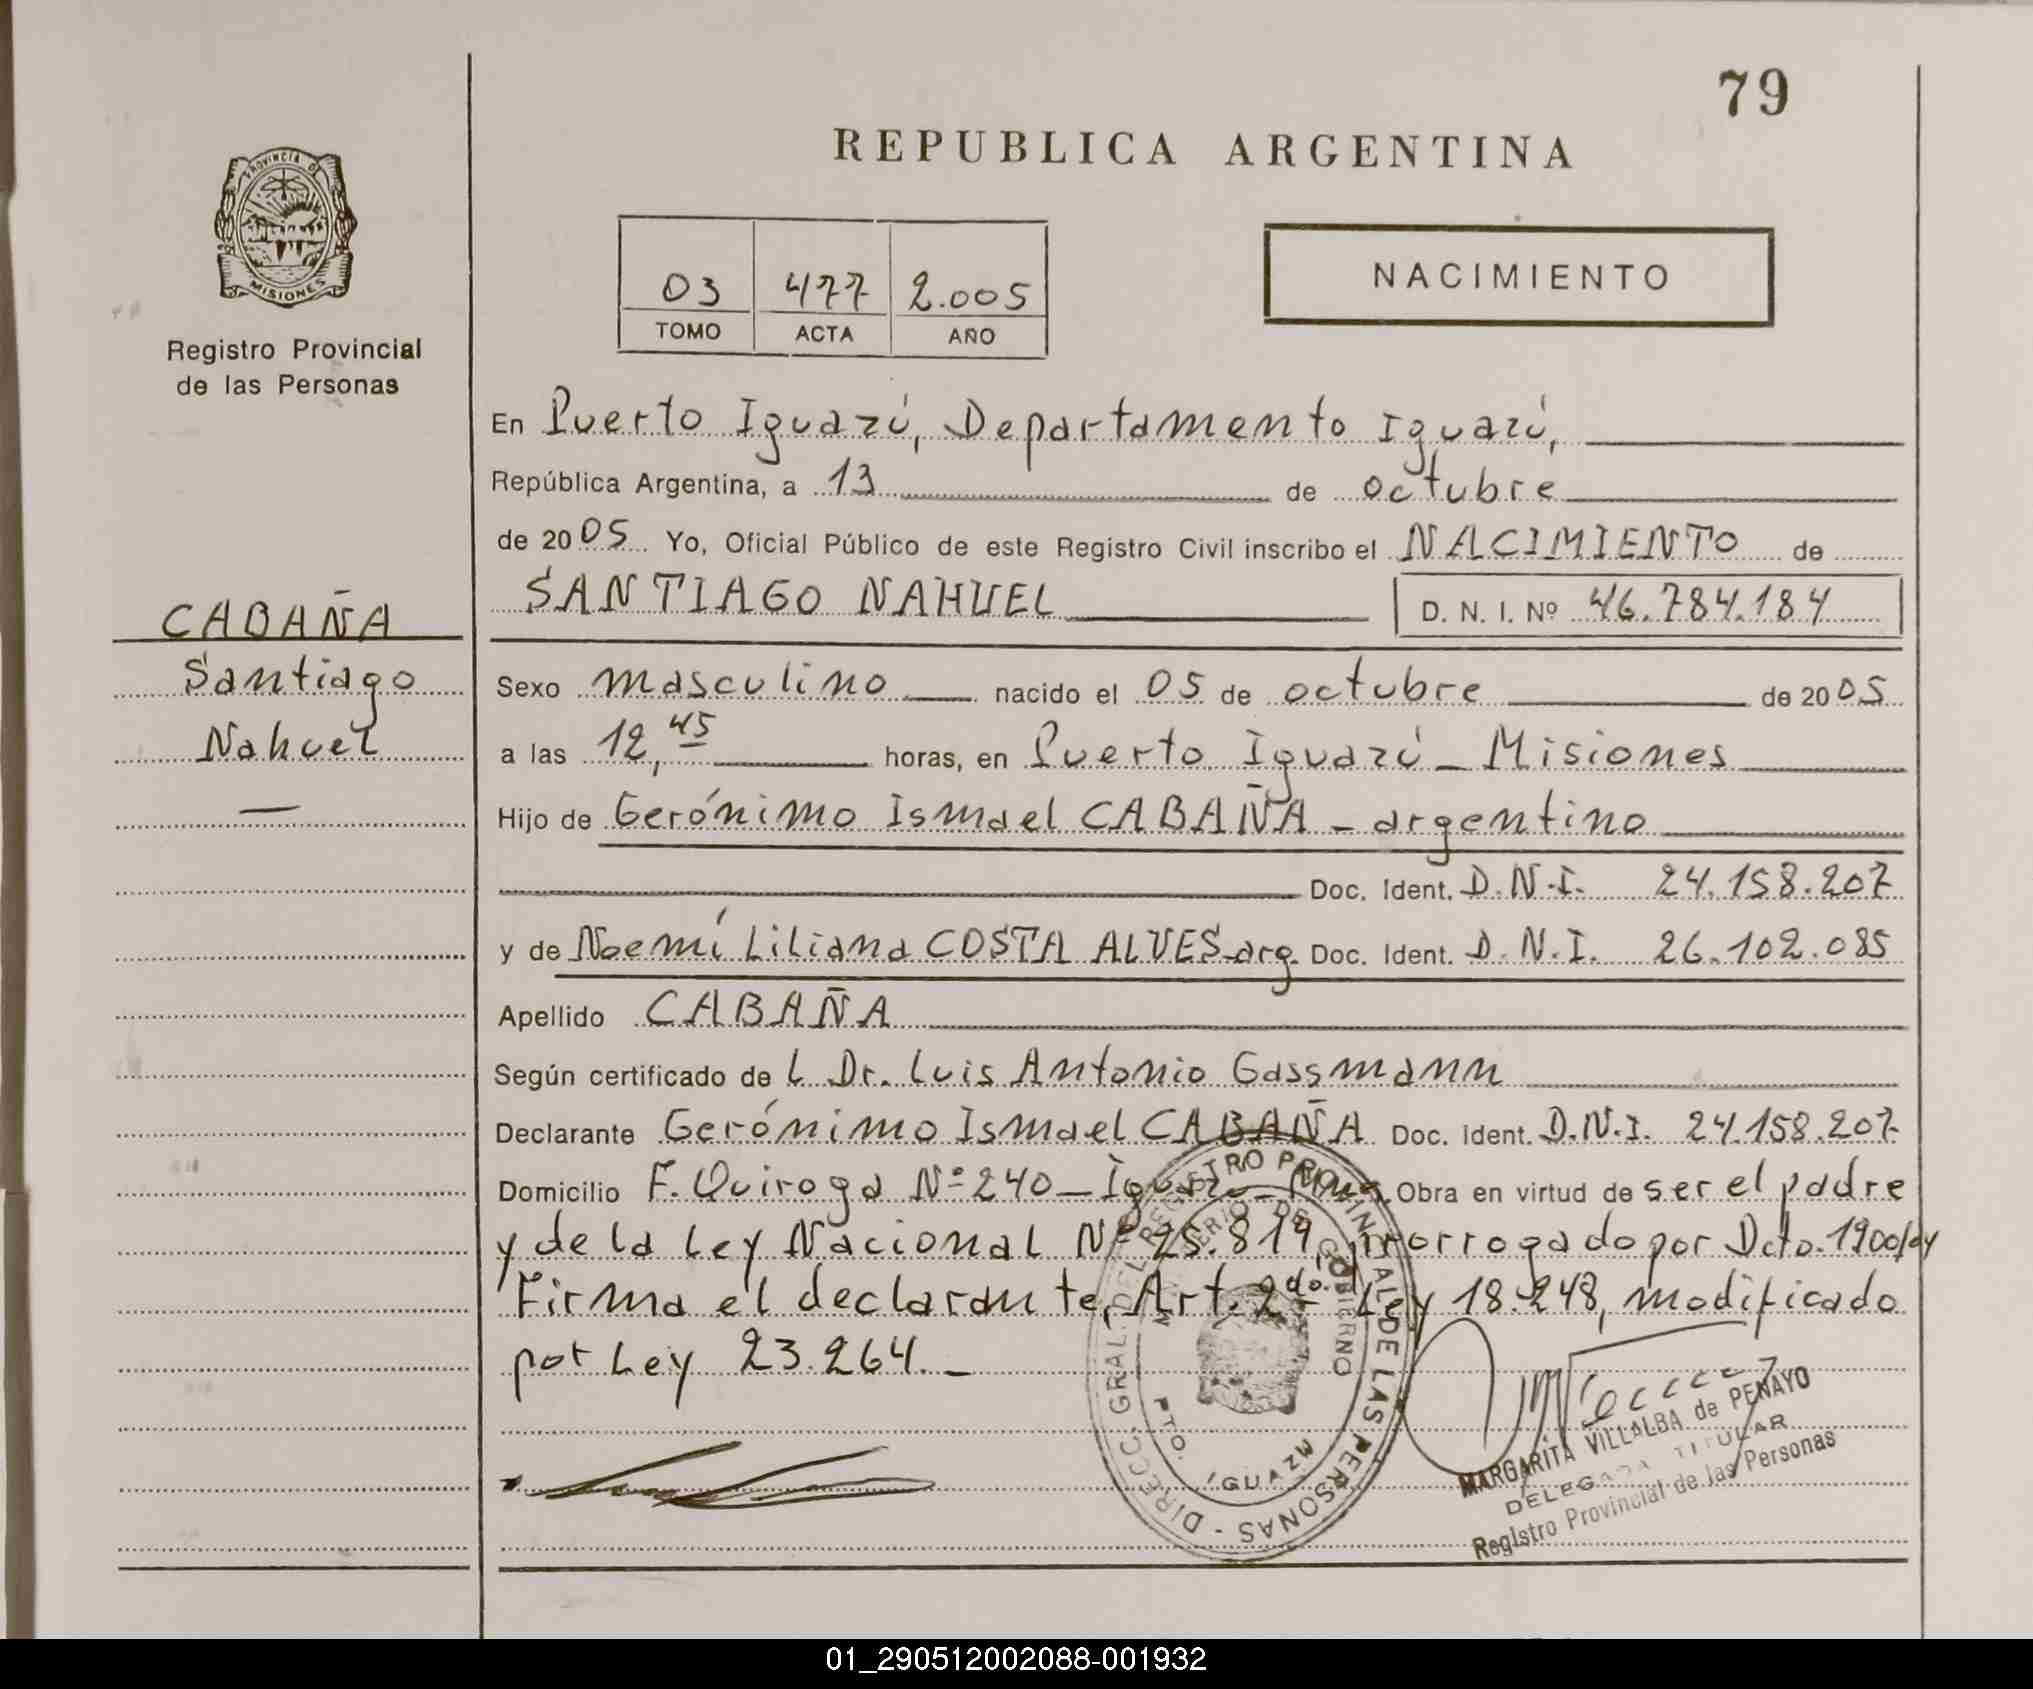 79
REPUBLICA ARGENTINA
PROVINCIA DE
MISIONES
Registro Provincial
de las Personas
03 477 2.005
TOMO ACTA AÑO
NACIMIENTO
En Puerto Iguazú, Departamento Iguazú,
República Argentina, a 13 de octubre
de 2005 Yo, Oficial Público de este Registro Civil inscribo el NACIMIENTO de
SANTIAGO NAHUEL D. N. I. Nº 46.784.184
CABAÑA
Santiago
Nahuel
—
Sexo masculino nacido el 05 de octubre de 2005
a las 12,45 horas, en Puerto Iguazú - Misiones
Hijo de Gerónimo Ismael CABAÑA - argentino
Doc. Ident. D.N.I. 24.158.207
y de Noemí Liliana COSTA ALVES-arg. Doc. Ident. D.N.I. 26.102.085
Apellido CABAÑA
Según certificado de L Dr. Luis Antonio Gassmann
Declarante Gerónimo Ismael CABAÑA Doc. Ident. D.N.I. 24.158.207
Domicilio F. Quiroga Nº 240 - Iguazú - Obra en virtud de ser el padre
y de la Ley Nacional Nº 25.819, prorrogado por Dcto. 1900/04
Firma el declarante, Art. 2do. Ley 18.248, modificado
por Ley 23.264. -
DIRECC. GRAL. DEL REGISTRO PROVINCIAL DE LAS PERSONAS -
DE GOBIERNO
PTO. IGUAZU
MARGARITA VILLALBA de PENAYO
DELEGADA TITULAR
Registro Provincial de las Personas
01_290512002088-001932